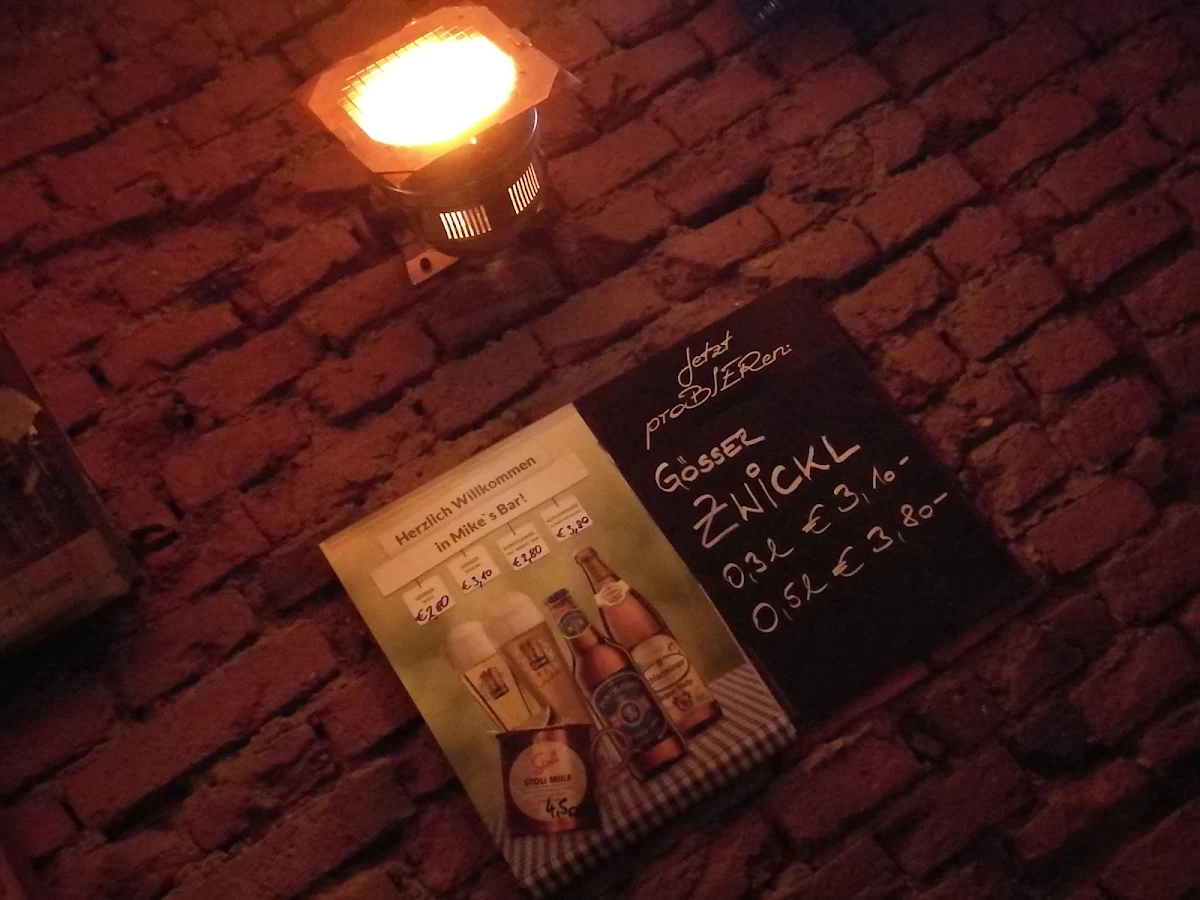 Herzlich Willkommen
in Mike's Bar!
€2,80
€3,10
€2,80
€3,80
Stoli
STOLI MULE
4,50
Jetzt
proBIERen:
GÖSSER
ZWICKL
0,3l € 3,10-
0,5l € 3,80-